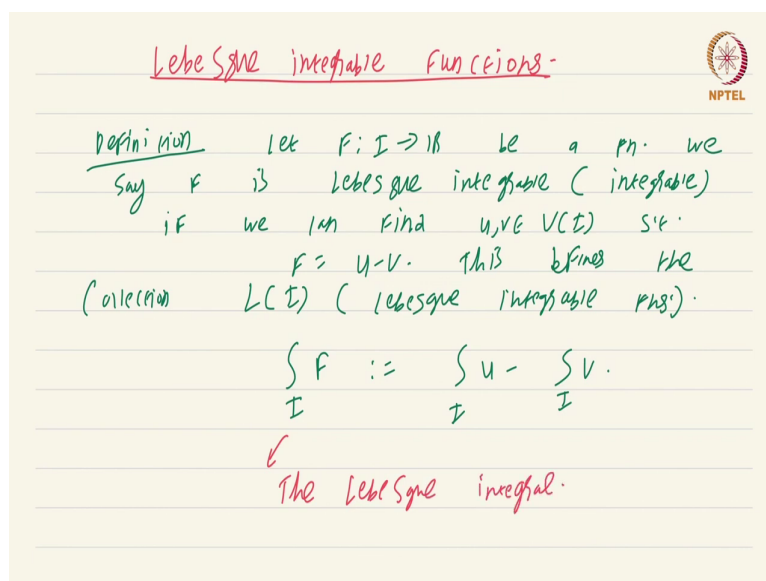 Lebesgue integrable functions-
NPTEL
Definition Let F: I → ℝ be a fn. we
say F is Lebesgue integrable ( integrable)
if we can find u,v ∈ U(I) s.t.
F = u-v. This defines the
Collection L(I) ( lebesgue integrable fns.).
∫_I F := ∫_I u - ∫_I v.
The Lebesgue integral.